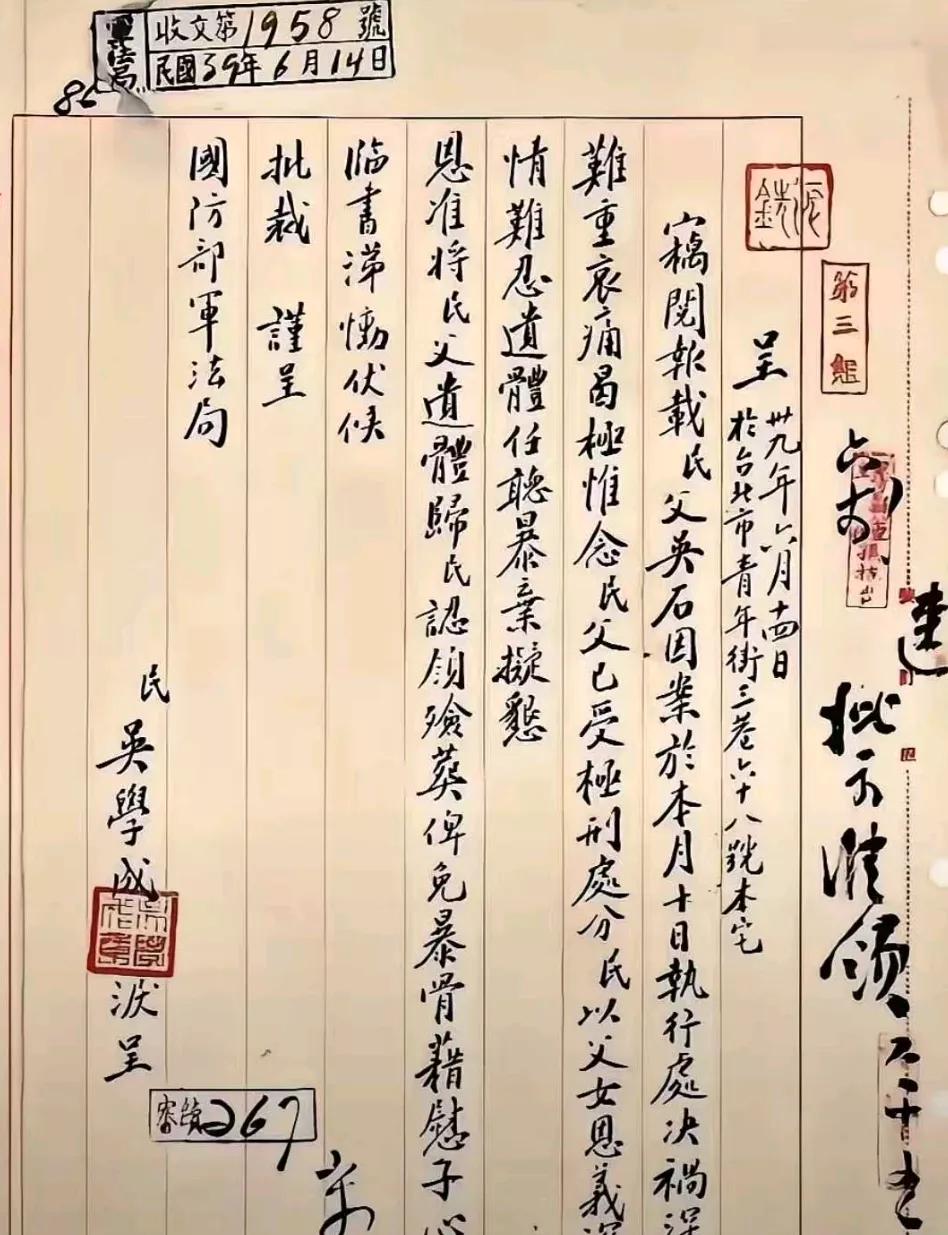 軍法局
收文第1958號
民國39年6月14日
第三組
批示准領
呈 卅九年六月十四日
於台北市青年街三巷六十八號本宅
竊閱報載民父吳石因案於本月十日執行處決禍深
難重哀痛曷極惟念民父已受極刑處分民以父女恩義深
情難忍遺體任聽暴棄擬懇
恩准將民父遺體歸民認領殮葬俾免暴骨藉慰子心
臨書涕慟伏候
批裁 謹呈
國防部軍法局
民 吳學成 淚呈
267